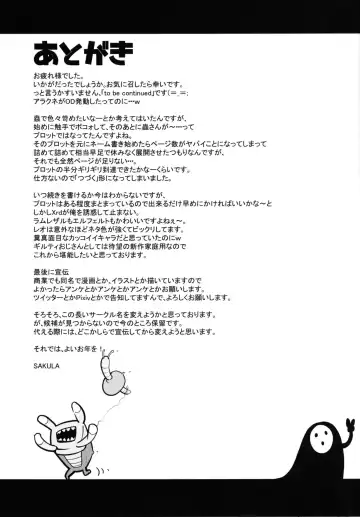 あとがき
お疲れ様でした。
いかがだったでしょうか。お気に召したら幸いです。
っと言うかすいません、「to be continued」です(＝.＝;
アラクネがOD発動したってのに…w
蟲で色々苛めたいなーとか考えてはいたんですが、
始めに触手でボコォして、そのあとに蟲さんが〜…って
プロットではなってたんですよ。
そのプロットを元にネーム書き始めたらページ数がヤバイことになってしまって
詰めて詰めて相当早足で休みなく展開させたつもりなんですが、
それでも全然ページが足りない…。
プロットの半分ギリギリ到達できたかなーくらいです。
仕方ないので「つづく」形になってしまいました。
いつ続きを書けるか今はわからないですが、
プロットはある程度まとまっているので出来るだけ早めにかければいいかなーと
しかしXrdが俺を誘惑して止まない。
ラムレザルもエルフェルトもかわいいですよねぇ〜。
レオは意外なほどネタ色が強くてビックリしてます。
糞真面目なカッコイイキャラだと思っていたのにw
ギルティおじさんとしては待望の新作家庭用なので
これから堪能したいと思っております。
最後に宣伝
商業でも同名で漫画とか、イラストとか描いていますので
よかったらアンケとかアンケとかアンケとかお願いします
ツイッターとかPixivとかで告知してますんで、よろしくお願いします。
そろそろ、この長いサークル名を変えようかと思っております。
が、候補が見つからないので今のところ保留です。
代える際には、どこかしらで宣伝してから変えようと思います。
それでは、よいお年を！
SAKULA